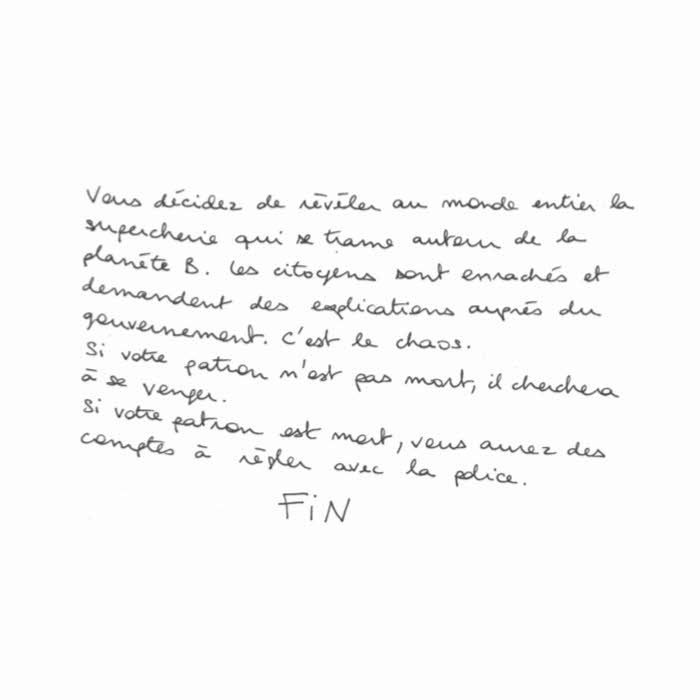 Vous décidez de révéler au monde entier la
supercherie qui se trame autour de la
planète B. Les citoyens sont enrachés et
demandent des explications auprès du
gouvernement. C'est le chaos.
Si votre patron n'est pas mort, il cherchera
à se venger.
Si votre patron est mort, vous aurez des
comptes à règler avec la police.
FiN